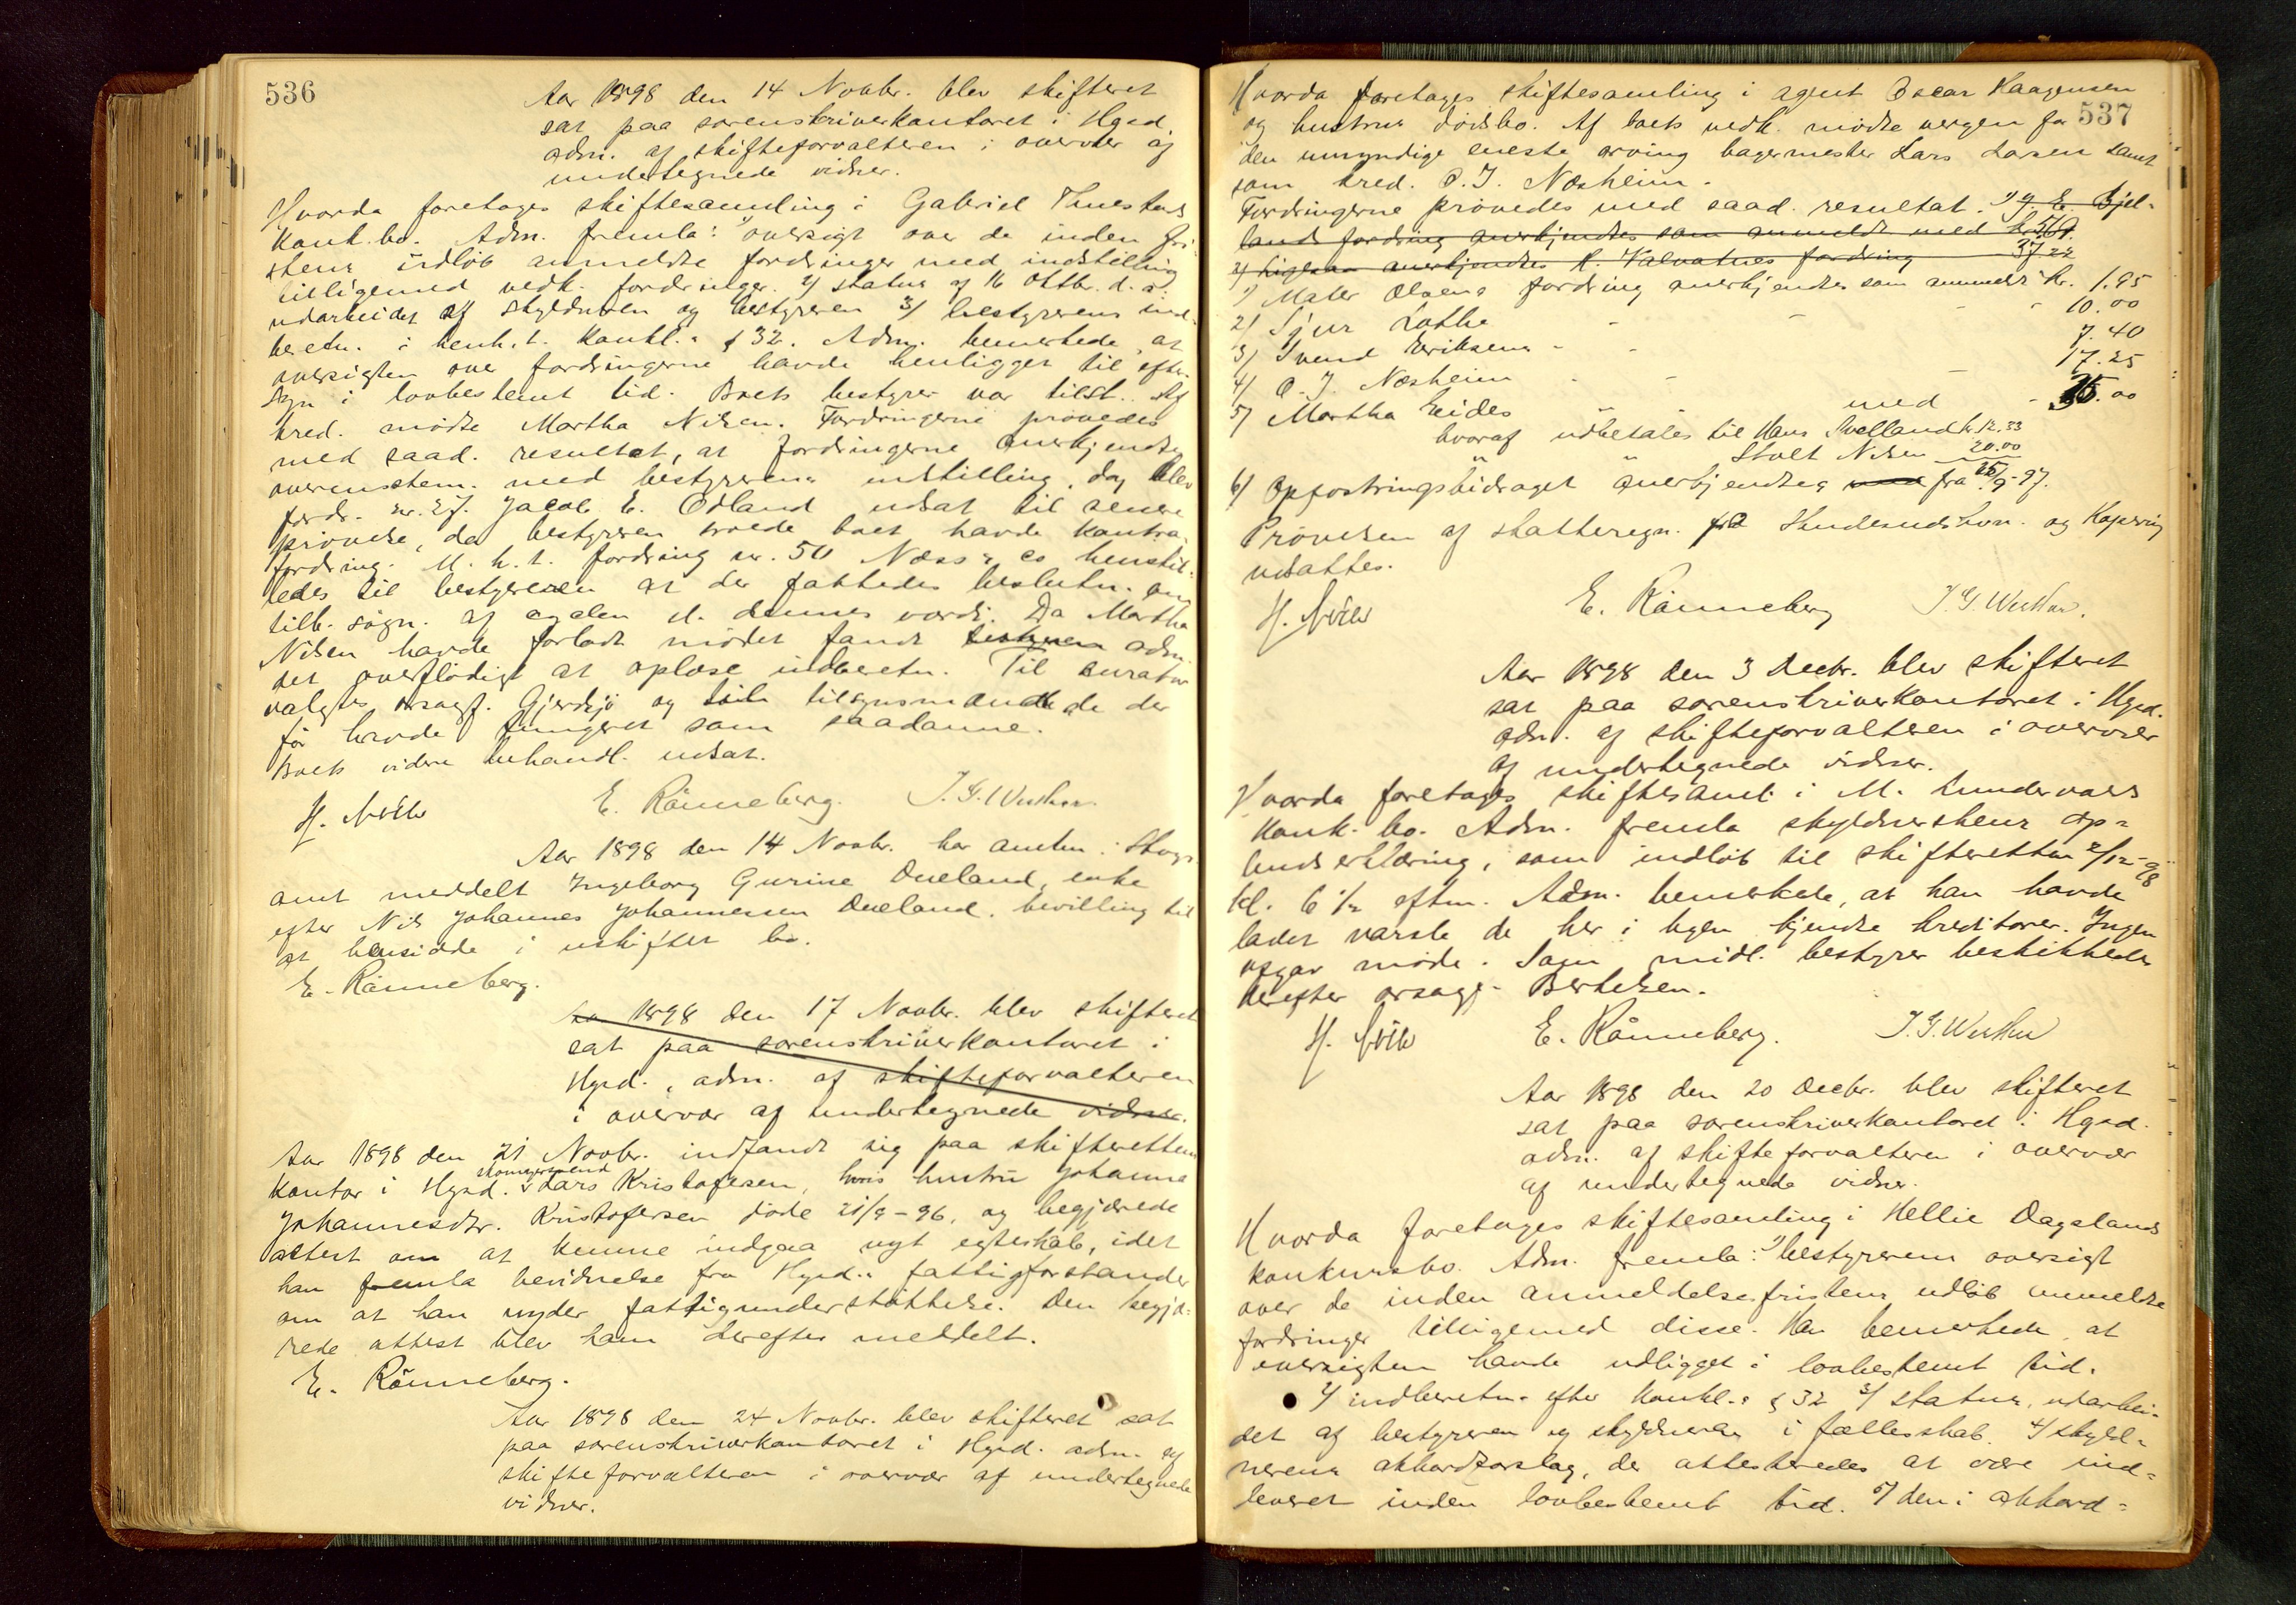 536
Aar 1898 den 14 Novbr. blev skifteret
sat paa sorenskriverkontoret i Hgsd.
adm. af skifteforvalteren i overvær af
undertegnede vidner.
Hvorda foretoges skiftesamling i Gabriel Thuestads
konk.bo. Adm. fremla: 1) oversigt over de inden fri-
stens udløb anmeldte fordringer med indstilling
tilligemed vedk. fordringer. 2/ status af 16 oktbr. d. a.
udarbeidet af skyldneren og bestyreren 3/ bestyrerens ind-
beretn. i henh. t. konkl.s § 32. Adm. bemerkede, at
oversigten over fordringerne havde henligget til efter-
syn i lovbestemt tid. Boets bestyrer var tilst. Af
kred. mødte Martha Nilsen. Fordringerne prøvedes
med saad. resultat, at fordringerne anerkjendtes
overensstem. med bestyrerens indstilling, dog blev
fordr. nr. 27. Jacob E. Odland udsat til senere
prøvelse, da bestyreren troede boet havde kontra-
fordring. M. h. t. fordring nr. 50 Næss & co henstil-
ledes til bestyreren at der fattedes beslutn. om
tilb. søgn. af cyclen el. dennes værdi. Da Martha
Nilsen havde forladt mødet fandt adm.
det overflødigt at oplæse indberetn. Til curator
valgtes orsagf. Gjerdsjø og til tilsynsmænd de der
før havde fungeret som saadanne.
Boets videre behandl. udsat.
E. Rønneberg. J. G. Wusthar.
Aar 1898 den 14 Novbr. har amtm. i Stav.
amt meddelt Ingeborg Gurine Dueland, enke
efter Nils Johannes Johannessen Dueland, bevilling til
at hensidde i uskiftet bo.
E. Rønneberg.
Aar 1898 den 17 Novbr. blev skifteret
sat paa sorenskriverkontoret i
Hgsd., adm. af skifteforvalteren
i overvær af undertegnede vidner.
Aar 1898 den 21 Novbr. indfandt sig paa skifterettens
kontor i Hgsd. Lars Kristofersen, hvis hustru Johanne
Johannesdtr. Kristofersen døde 21/9-96, og begjærede
attest om at kunne indgaa nyt egteskab, idet
han fremla bevidnelse fra Hgsd.s fattigforstander
om at han nyder fattigunderstøttelse. Den begjæ-
rede attest blev ham derefter meddelt.
E. Rønneberg.
Aar 1898 den 24 Novbr. blev skifteret sat
paa sorenskriverkontoret i Hgsd. adm. af
skifteforvalteren i overvær af undertegnede
vidner.
537
Hvorda foretoges skiftesamling i agent Oscar Haagensen
og hustrus dødsbo. Af boets vedk. mødte vergen for
den umyndige eneste arving bagermester Lars Larsen samt
som kred. O. J. Næsheim.
Fordringerne prøvedes med saad. resultat. 1) G. E. Bjel-
lands fordring anerkjendtes som anmeldt med
2) Ligesaa anerkjendtes H. Valvatnes fordring 37.22
1) Maler Olsens fordring anerkjendtes som anmeldt kr. 1.95
2/ Sjur Lothe - - - 10.00
3/ Svend Eriksens - - 7.40
4/ O. J. Næsheim - - - 17.25
5/ Martha Eides med - 35.00
hvoraf udbetales til Hans Svelland k. 12.33
Stolt Nilsen 20.00
6/ Opfostringsbidraget anerkjendtes fra 25/9-97.
Prøvelsen af skatteregn. fra Skudesneshavn. og Kopervig
udsattes.
E. Rønneberg J. G. Wusthar.
Aar 1898 den 3 Decbr. blev skifteret
sat paa sorenskriverkontoret i Hgsd.
adm. af skifteforvalteren i overvær
af undertegnede vidner.
Hvorda foretoges skiftesaml. i M. Lundervolds
konk. bo. Adm. fremla skyldnerskens op-
budserklæring, som indløb til skifteretten 2/12-98
kl. 6 1/2 eftm. Adm. bemerkede, at han havde
ladet varsle de her i byen kjendte kreditorer. Ingen
afgav møde. Som midl. bestyrer beskikkedes
derefter orsagf. Bertelsen.
E. Rønneberg. J. G. Wusthar
Aar 1898 den 20 Decbr. blev skifteret
sat paa sorenskriverkontoret i Hgsd.
adm. af skifteforvalteren i overvær
af undertegnede vidner.
Hvorda foretoges skiftesamling i Hellie Dagslands
konkursbo. Adm. fremla: 1) bestyrerens oversigt
over de inden anmeldelsesfristens udløb anmeldte
fordringer tilligemed disse. Han bemerkede, at
oversigten havde udligget i lovbestemt tid.
2/ indberetn. efter konkl.s § 32 3/ status, udarbei-
det af bestyreren og skyldneren i fællesskab. 4/ skyld-
nerens akkordforslag, der attesteredes at være ind-
leveret inden lovbestemt tid. 5/ den i akkord-